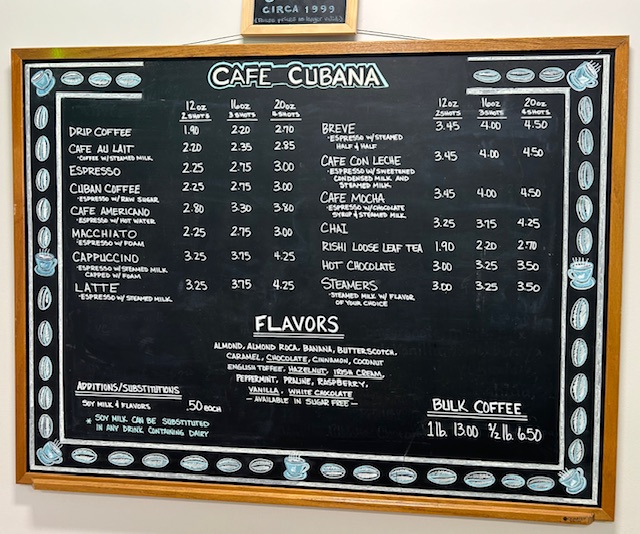 CIRCA 1999
CAFE CUBANA
12oz 16oz 20oz
2 SHOTS 3 SHOTS 4 SHOTS
DRIP COFFEE 1.90 2.20 2.70
CAFE AU LAIT 2.20 2.35 2.85
·COFFEE W/STEAMED MILK
ESPRESSO 2.25 2.75 3.00
CUBAN COFFEE 2.25 2.75 3.00
·ESPRESSO W/ RAW SUGAR
CAFE AMERICANO 2.80 3.30 3.80
·ESPRESSO W/ HOT WATER
MACCHIATO 2.25 2.75 3.00
·ESPRESSO W/ FOAM
CAPPUCCINO 3.25 3.75 4.25
·ESPRESSO W/STEAMED MILK
CAPPED W/ FOAM
LATTE 3.25 3.75 4.25
·ESPRESSO W/STEAMED MILK
12oz 16oz 20oz
2 SHOTS 3 SHOTS 4 SHOTS
BREVE 3.45 4.00 4.50
·ESPRESSO W/STEAMED
HALF & HALF
CAFE CON LECHE 3.45 4.00 4.50
·ESPRESSO W/ SWEETENED
CONDENSED MILK AND
STEAMED MILK
CAFE MOCHA 3.45 4.00 4.50
·ESPRESSO W/CHOCOLATE
SYRUP & STEAMED MILK
CHAI 3.25 3.75 4.25
RISHI LOOSE LEAF TEA 1.90 2.20 2.70
HOT CHOCOLATE 3.00 3.25 3.50
STEAMERS 3.00 3.25 3.50
·STEAMED MILK W/ FLAVOR
OF YOUR CHOICE
FLAVORS
ALMOND, ALMOND ROCA, BANANA, BUTTERSCOTCH,
CARAMEL, CHOCOLATE, CINNAMON, COCONUT
ENGLISH TOFFEE, HAZELNUT, IRISH CREAM,
PEPPERMINT, PRALINE, RASPBERRY,
VANILLA, WHITE CHOCOLATE
— AVAILABLE IN SUGAR FREE —
ADDITIONS/SUBSTITUTIONS
SOY MILK & FLAVORS .50 EACH
* SOY MILK CAN BE SUBSTITUTED
IN ANY DRINK CONTAINING DAIRY
BULK COFFEE
1 lb. 13.00 1/2 lb. 6.50